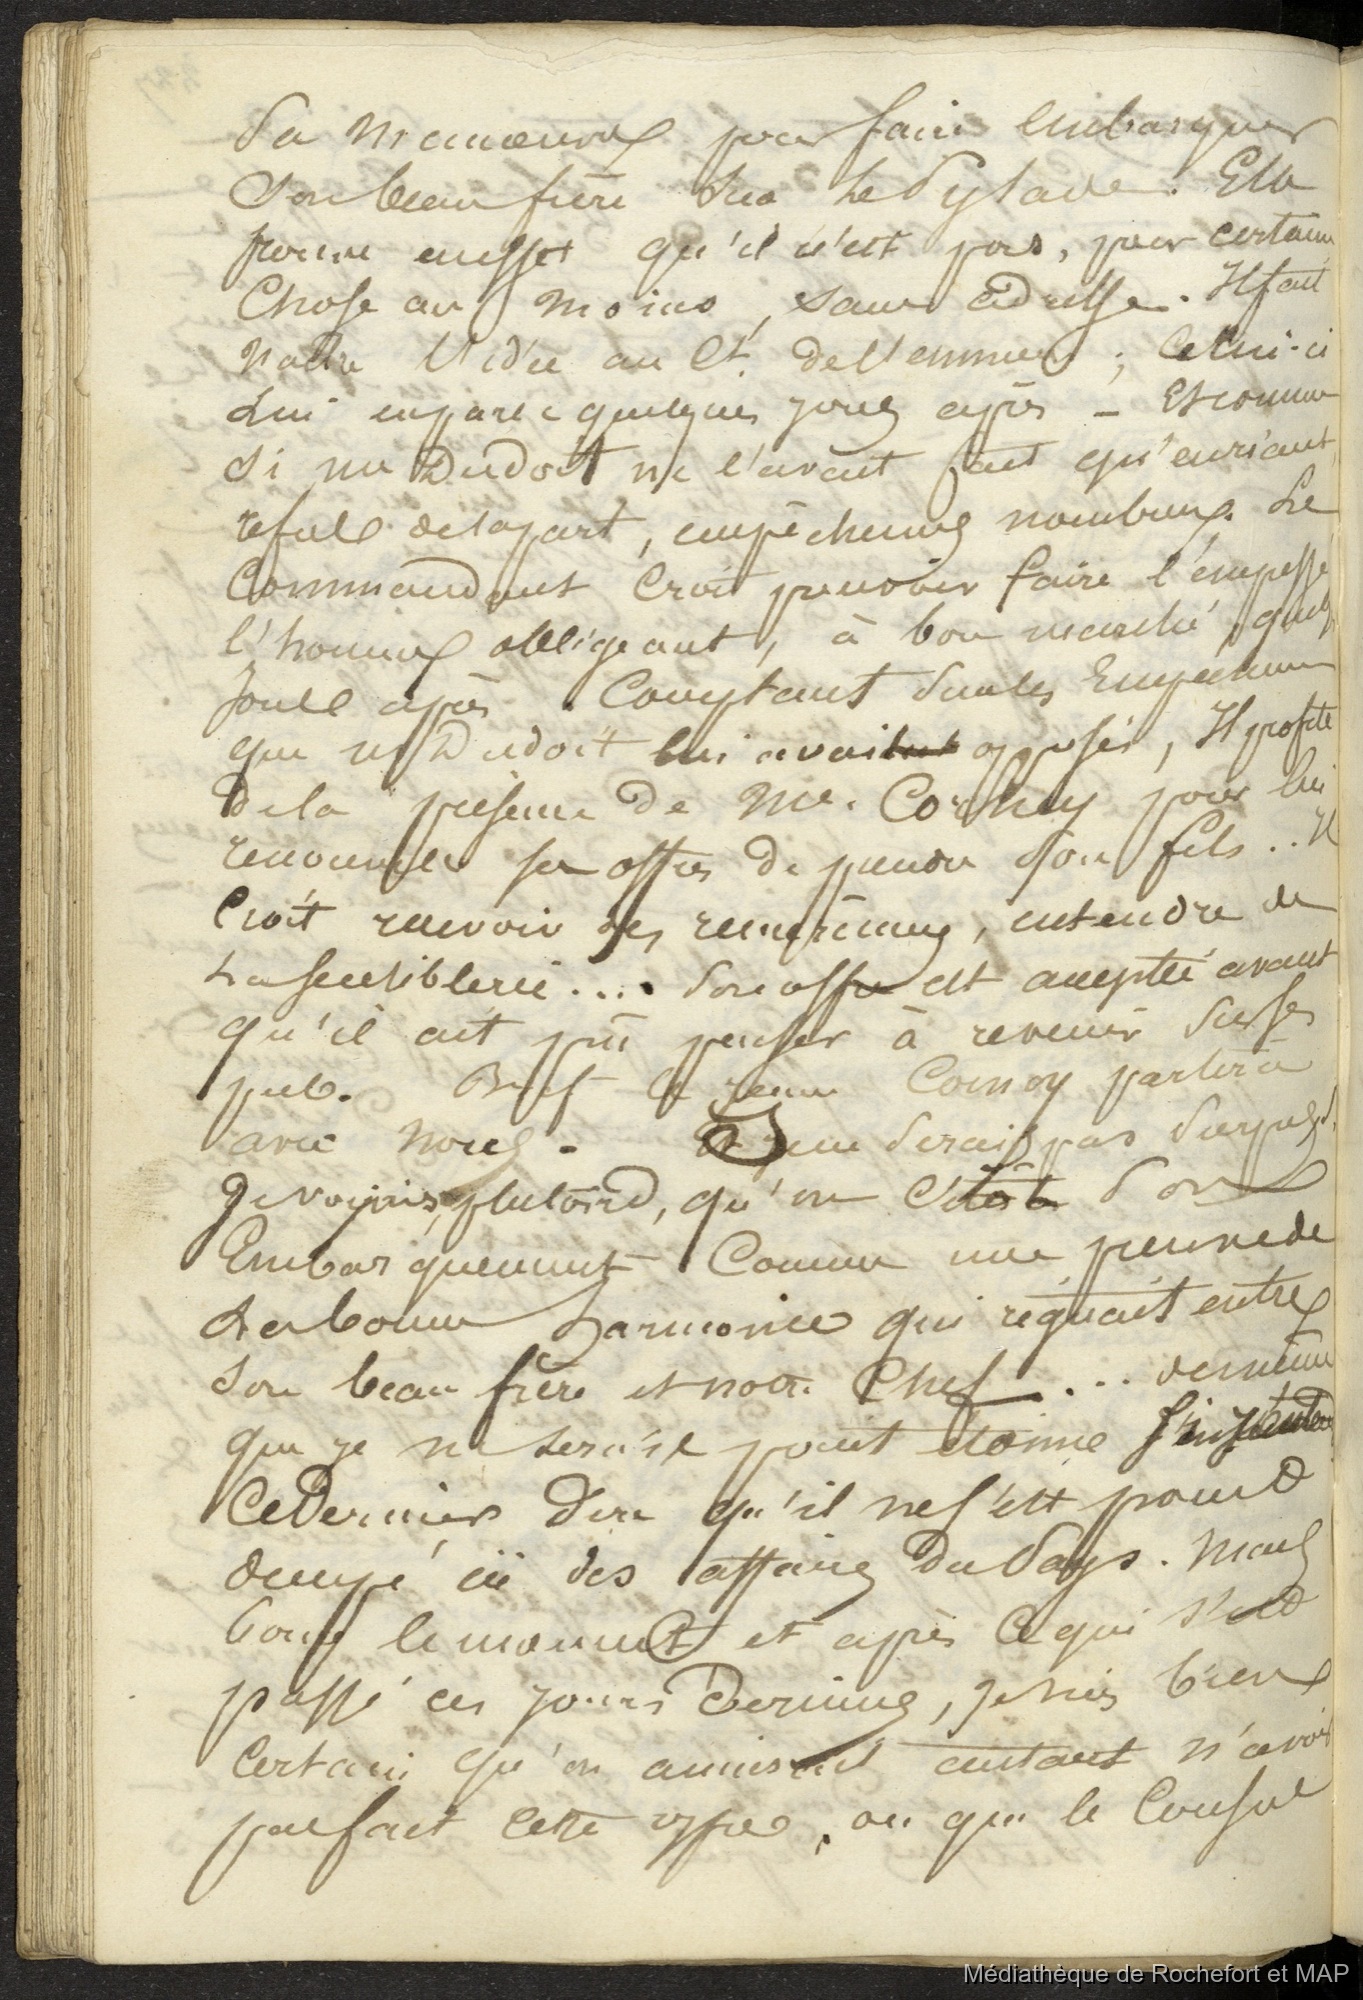 Sa manœuvre pour faire embarquer
Son beau frère sur Le Pylade. Elle
prouve aussi qu'il n'est pas, pour certaine
Chose au moins, sans adresse. Il fait
naître l'idée au Ct. de l'emmener ; Celui-ci
Lui en parle quelques jours après - Et comme
Si mr Dudoit ne l'avait fait qu'en riant,
refus de sa part, empêchemens nombreux. Le
Commandant Croit pouvoir faire l'empressé
l'homme obligeant, à bon marché, quelq
jours après. Comptant sur les Empêchemens
que mr Dudoit lui avait opposés, Il profite
de la présence de Mr. Cornoy pour lui
renouveler ses offres de prendre son fils .. Il
Croit recevoir des remercimens, entendre de
La sensiblerie .... Son offre est acceptée avant
qu'il ait pû penser à revenir sur ses
pas. Bref le jeune Cornoy partira
avec nous. Et je ne serais pas surpris,
Je voyais, plutard, qu'on Citât Son
Embarquement Comme une preuve de
La bonne harmonie qui régnait entre
Son beau frère et notre Chef .... de même
que je ne serais point étonné
Ce Dernier dire qu'il ne s'est point
occupé ici des affaires du Pays. Mais
Pour le moment et après Ce qui s'est
passé ces jours Derniers, je suis bien
Certain qu'on aimerait autant n'avoir
pas fait cette offre, ou que le Consul
Médiathèque de Rochefort et MAP